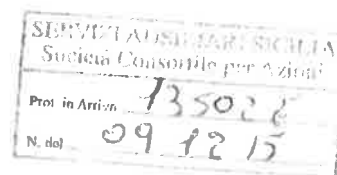 SERVIZI AUSILIARI SICILIA
Società Consortile per Azioni
Prot. in Arrivo 135022
N. del 09 12 15